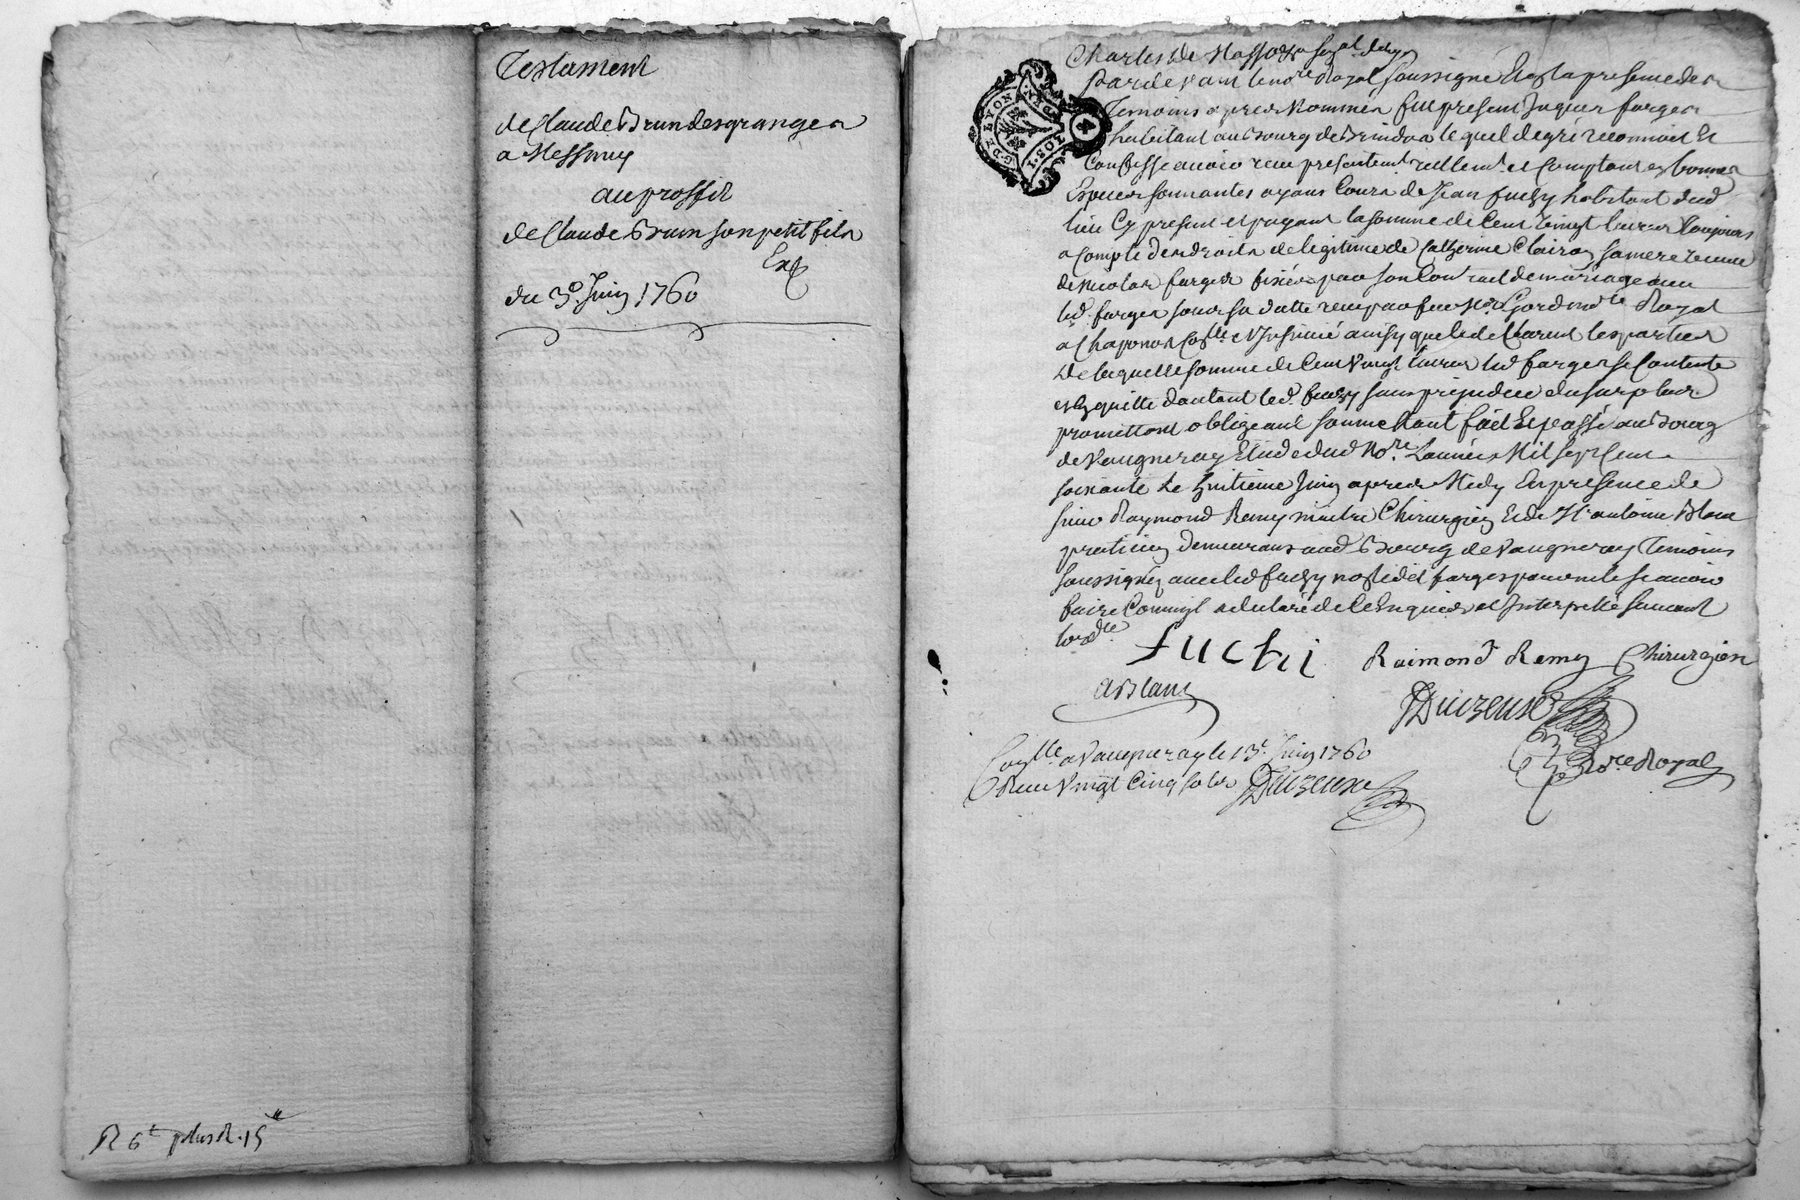 Testament
de Claude Brun des granges
a Messimy
au proffit
de Claude Brun son petit fils
Ex
du 3e. Juin 1760
R 6 plus R. 15
Charles de Masso
Pardevant le nore Royal soussigné Et en la presence des
Temoins apres Nommés fut present Jaques farges
habitant au Bourg de Brindas lequel de gré reconnoit Et
Confesse avoir reçu presentemt reellemt et Comptant en bonnes
Especes sonnantes ayans Cours de Jean fuchy habitant dud
lieu Cy present et payant la somme de Cent Vingt livres Toujours
a Compte des droits de legitime de Catherine Clairon sa mere veuve
de Nicolas farges fixés par son Contract de mariage avec
led farges sous sa datte reçu par feu Me Royal
a Chaponost Collé et Insinué ainsy que le declarent les parties
De laquelle somme de Cent Vingt livres led farges se Contente
en quitte dautant led. fuchy sans prejudice du surplus
promettant obligeant soumettant fait Et passé au Bourg
de Vaugneray Etude dud Nore. L'année Mil sept Cent
soixante Le huitieme Juin apres Midy En presence de
sieur Raymond Remy maitre Chirurgien Et de Sr antoine Blanc
praticien demeurans aud Bourg de Vaugneray Temoins
soussignés avec led fuchy non led farges pour ne le scavoir
faire Comm'il a declaré de ce Enquis et Interpellé suivant
lordce
fuchi Raimond Remy Chirurgien
ABlanc
JDuizeux
Nore Royal
Collé a Vaugneray le 13e. Juin 1760
Reçu Vingt Cinq sols JDuizeux
G. DE LYON